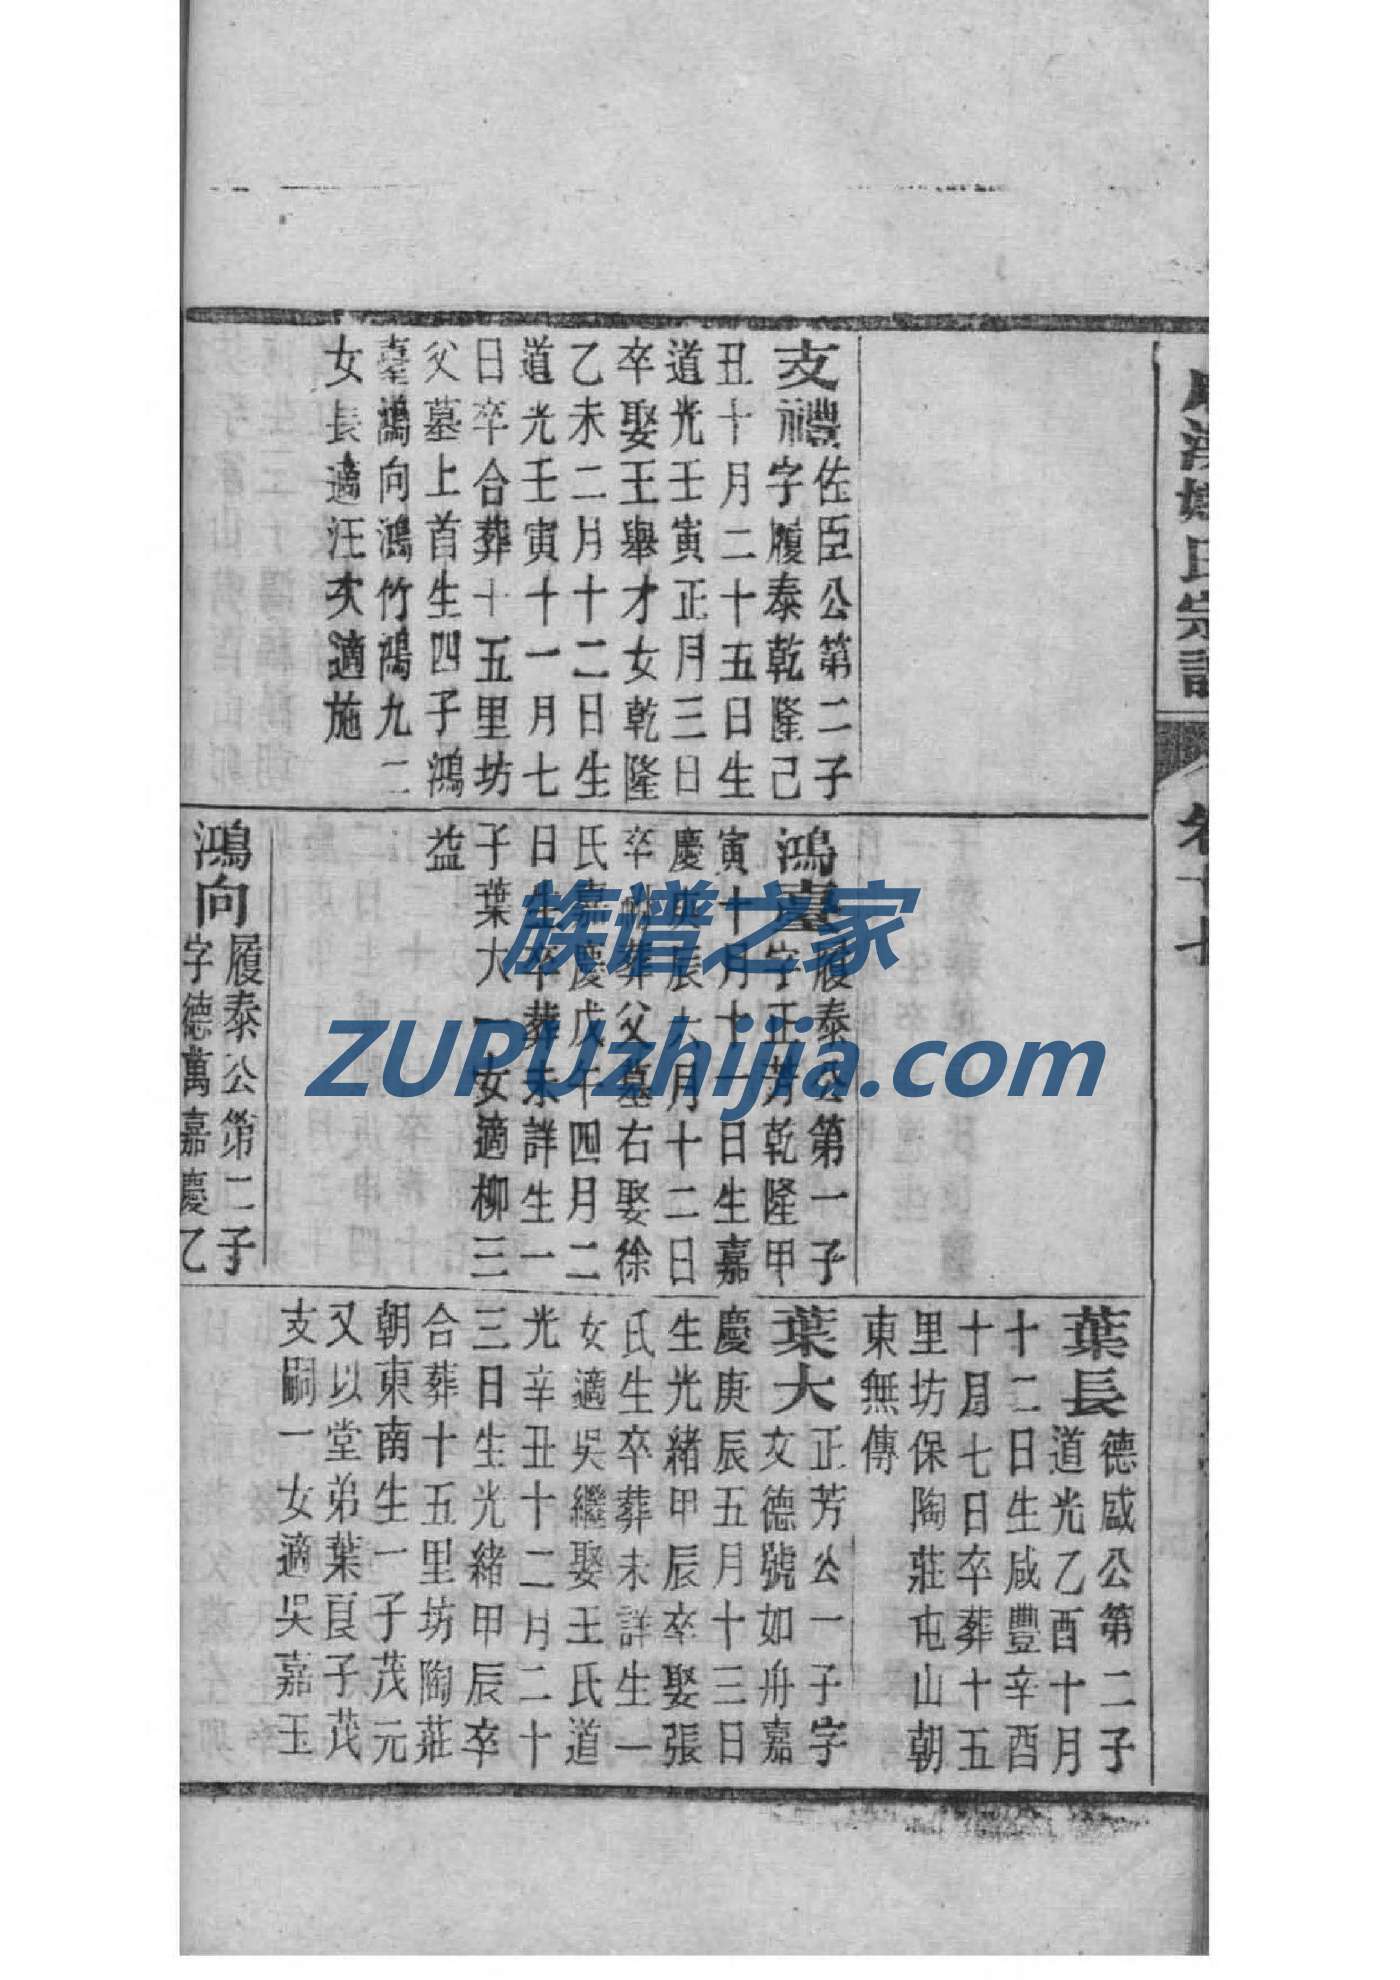 氏宗譜
支禮
佐臣公第二子
字履泰乾隆己
丑十月二十五日生
道光壬寅正月三日
卒娶王舉才女乾隆
乙未二月十二日生
道光壬寅十一月七
日卒合葬十五里坊
父墓上首生四子鴻
臺鴻向鴻竹鴻九二
女長適汪次適施
鴻臺
履泰公第一子
字正芳乾隆甲
寅十月十一日生嘉
慶丙辰六月十二日
卒 葬父墓右娶徐
氏嘉慶戊午四月二
日生卒葬未詳生一
子葉大一女適柳三
益
鴻向
履泰公第二子
字德萬嘉慶乙
葉長
德咸公第二子
道光乙酉十月
十二日生咸豐辛酉
十月七日卒葬十五
里坊保陶莊屯山朝
東無傳
葉大
正芳公一子字
文德號如舟嘉
慶庚辰五月十三日
生光緒甲辰卒娶張
氏生卒葬未詳生一
女適吳繼娶王氏道
光辛丑十二月二十
三日生光緒甲辰卒
合葬十五里坊陶莊
朝東南生一子茂元
又以堂弟葉良子茂
支嗣一女適吳嘉玉
族谱之家
ZUPUzhijia.com